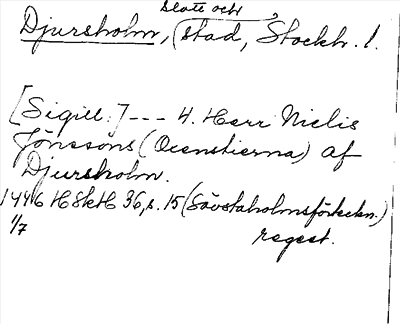 slott och
Djursholm, stad, Stockh. l.
[Sigill:] --- 4. Herr Nielis
Jönssons (Oxenstierna) af
Djursholm.
1446 HSkH 36, s. 15 (Sävstaholmsförteckn.)
1/7 regest.